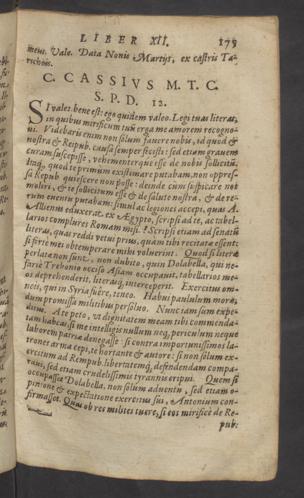 LIBER XII. 179
meus. Vale. Data Nonis Martijs, ex castris Ta-
richeis.
C. CASSIVS M. T. C.
S. P. D. 12.
SI vales bene est: ego quidem valeo. Legi tuas literas,
in quibus mirificum tuũ erga me amorem recogno-
ui. Videbaris enim non solum fauere nobis, id quod &
nostra & Reipub. causa semper fecisti: sed etiam grauem
curam suscepisse, vehementerque esse de nobis sollicitũ.
Itaq; quod te primum existimare putabam, non oppres-
sa Repub. quiescere non posse: deinde cum suspicare nos
moliri, & te sollicitum esse & de salute nostra, & de re-
rum euentu putabam: simul ac legiones accepi, quas A.
Allienus eduxerat ex Ægypto, scripsi ad te, ac tabel-
larios complures Romam misi. Scripsi etiam ad senatũ
literas, quas reddi vetui prius, quàm tibi recitatæ essent:
si fortè mei obtemperare mihi voluerint. Quod si literæ
perlatæ non sunt, non dubito, quin Dolabella, qui ne-
fariè Trebonio occiso Asiam occupauit, tabellarios me-
os deprehenderit, literasq; interceperit. Exercitus om-
neis, qui in Syria fuêre, teneo. Habui paululum moræ,
dum promissa militibus persoluo. Nunc iam sum expe-
ditus. A te peto, vt dignitatem meam tibi commenda-
tam habeas, si me intelligis nullum neq; periculum neque
laborem patriæ denegasse: si contra importunissimos la-
trones arma cepi, te hortante & autore: si non solum ex-
ercitum ad Rempub. libertatemq; defendendam compa-
raui, sed etiam crudelissimis tyrannis eripui. Quem si
occupasset Dolabella, non solum aduentu, sed etiam o-
pinione & expectatione exercitus sui, Antonium con-
firmasset. Quas ob res milites tuere, si eos mirificè de Re-
pub: